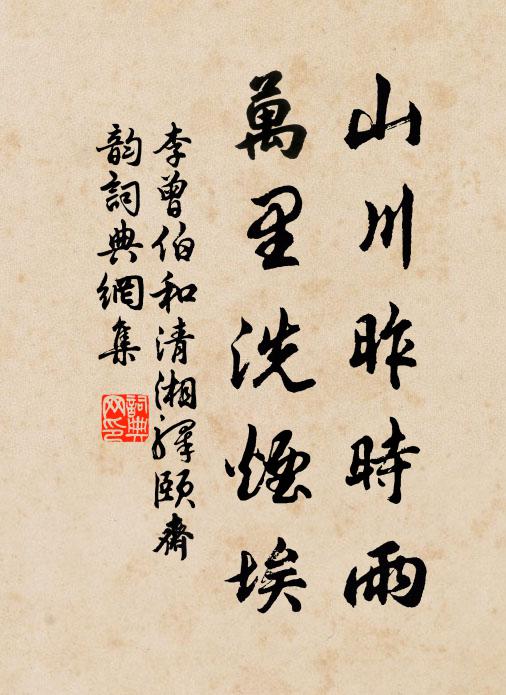 山川昨時雨
萬里洗煙埃
李曾伯和清湘驛頤齋
韵詞典網集
詞典
网印